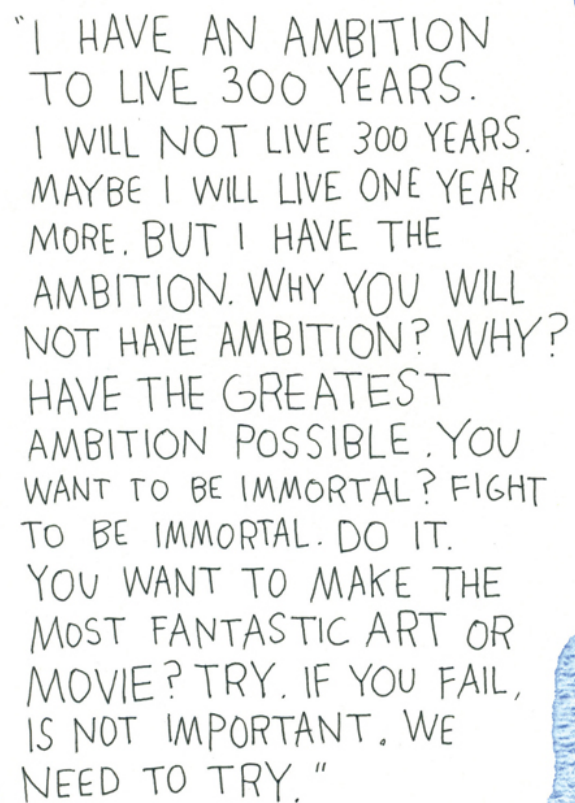 "I HAVE AN AMBITION
TO LIVE 300 YEARS.
I WILL NOT LIVE 300 YEARS.
MAYBE I WILL LIVE ONE YEAR
MORE. BUT I HAVE THE
AMBITION. WHY YOU WILL
NOT HAVE AMBITION? WHY?
HAVE THE GREATEST
AMBITION POSSIBLE. YOU
WANT TO BE IMMORTAL? FIGHT
TO BE IMMORTAL. DO IT.
YOU WANT TO MAKE THE
MOST FANTASTIC ART OR
MOVIE? TRY. IF YOU FAIL,
IS NOT IMPORTANT. WE
NEED TO TRY."